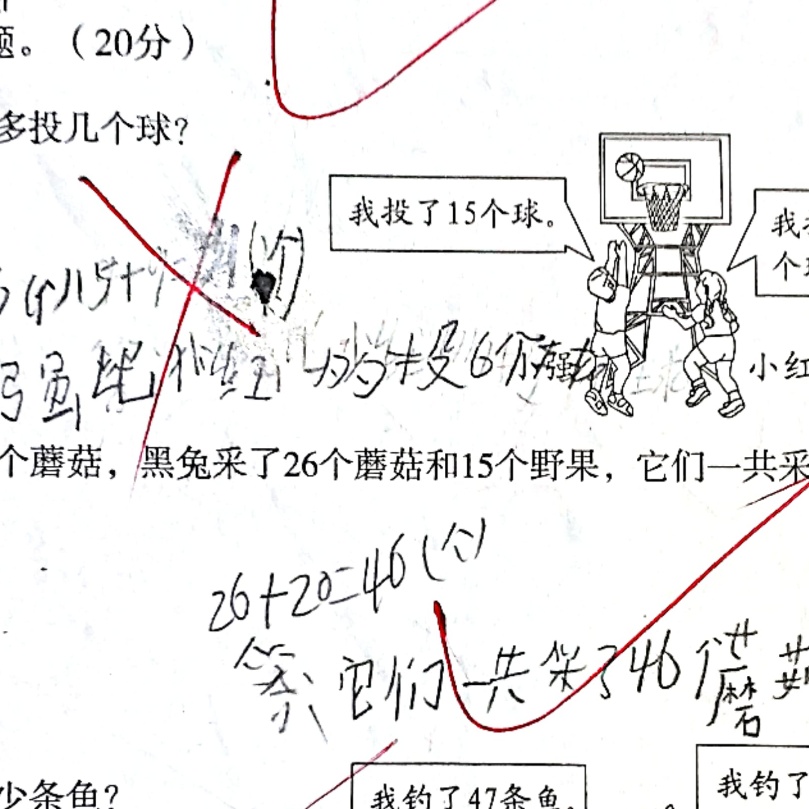 题。（20分）
多投几个球？
我投了15个球。
我
个
多投6个
小红
个蘑菇，黑兔采了26个蘑菇和15个野果，它们一共采
26+20=46(个)
答 它们一共采了46个蘑菇
少条鱼？
我钓了47条鱼。
我钓了